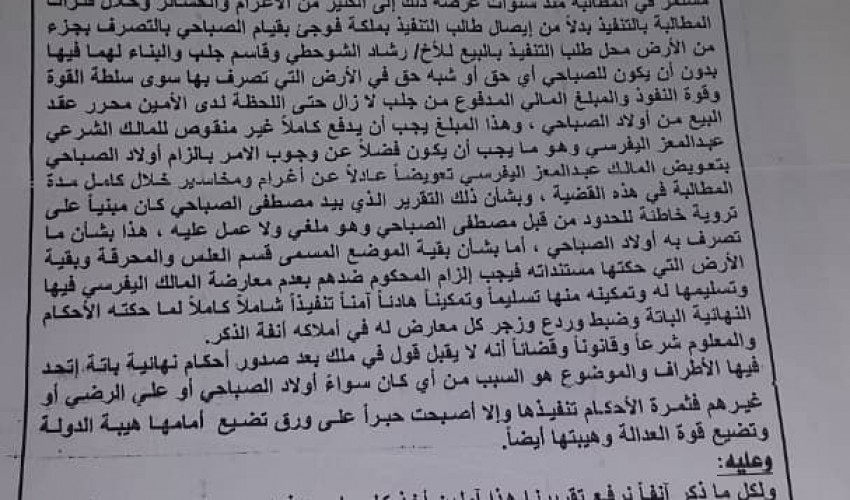 مستمر في المطالبة منذ سنوات عرضه ذلك إلى الكثير من الأغرام والخسائر وخلال فترات
المطالبة بالتنفيذ بدلاً من إيصال طالب التنفيذ بملكة فوجئ بقيام الصباحي بالتصرف بجزء
من الأرض محل طلب التنفيذ بالبيع للأخ/ رشاد الشوحطي وقاسم جلب والبناء لهما فيها
بدون أن يكون للصباحي أي حق أو شبه حق في الأرض التي تصرف بها سوى سلطة القوة
وقوة النفوذ والمبلغ المالي المدفوع من جلب لا زال حتى اللحظة لدى الأمين محرر عقد
البيع من أولاد الصباحي ، وهذا المبلغ يجب أن يدفع كاملاً غير منقوص للمالك الشرعي
عبدالمعز اليفرسي وهو ما يجب أن يكون فضلاً عن وجوب الامر بالزام أولاد الصباحي
بتعويض المالك عبدالمعز اليفرسي تعويضاً عادلاً عن أغرام ومخاسير خلال كامل مدة
المطالبة في هذه القضية ، وبشأن ذلك التقرير الذي بيد مصطفى الصباحي كان مبنياً على
تروية خاطئة للحدود من قبل مصطفى الصباحي وهو ملغي ولا عمل عليه ، هذا بشأن ما
تصرف به أولاد الصباحي ، أما بشأن بقية الموضع المسمى قسم العلس والمحرقة وبقية
الأرض التي حكتها مستنداته فيجب إلزام المحكوم ضدهم بعدم معارضة المالك اليفرسي فيها
وتسليمها له وتمكينه منها تسليماً وتمكيناً هادئاً آمناً تنفيذاً شاملاً كاملاً لما حكته الأحكام
النهائية الباتة وضبط وردع وزجر كل معارض له في أملاكه آنفة الذكر.
والمعلوم شرعاً وقانوناً وقضائاً أنه لا يقبل قول في ملك بعد صدور أحكام نهائية باتة إتحد
فيها الأطراف والموضوع هو السبب من أي كان سواءً أولاد الصباحي أو علي الرضي أو
غيرهم فثمرة الأحكام تنفيذها وإلا أصبحت حبراً على ورق تضيع أمامها هيبة الدولة
وتضيع قوة العدالة وهيبتها أيضاً.
وعليه:
ولكل ما ذكر آنفاً نرفع تقريرنا هذا